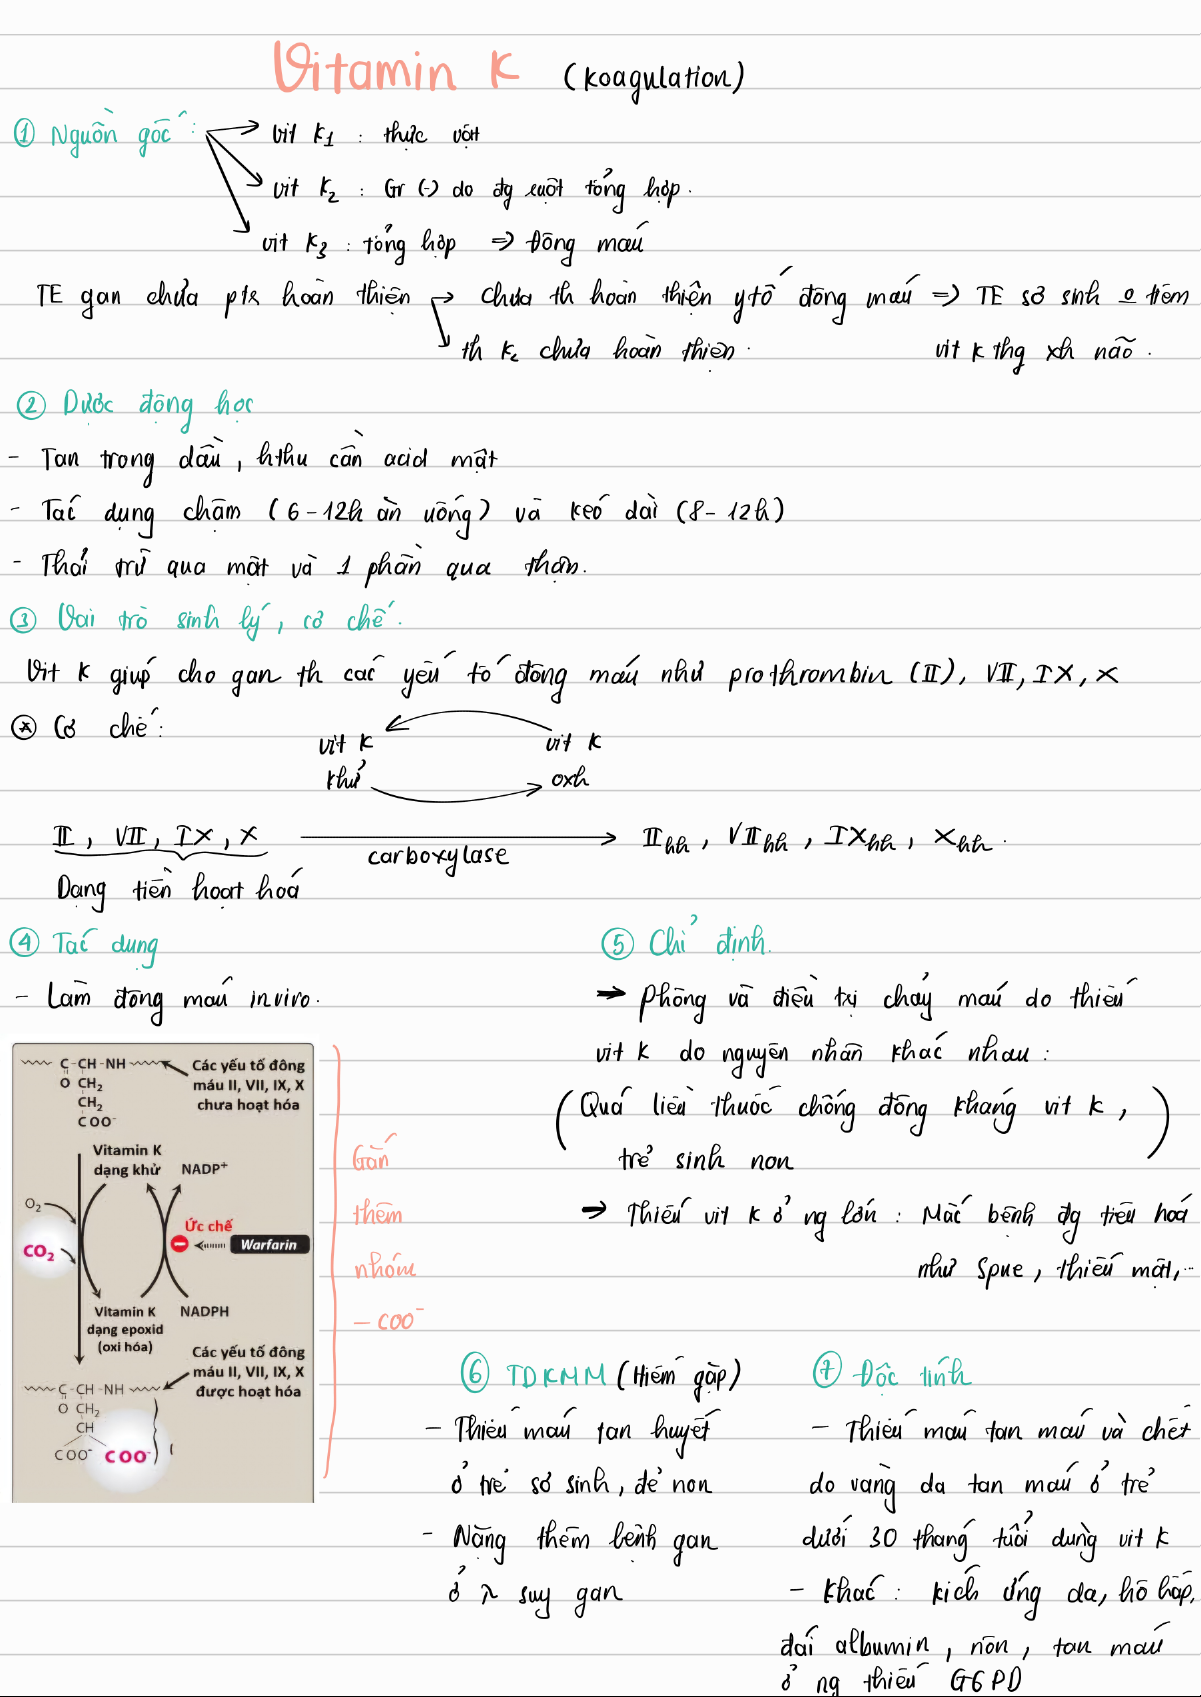 Vitamin K (Koagulation)
① Nguồn gốc :
vit K1 : thực vật
vit K2 : Gr (-) do đg ruột tổng hợp.
vit K3 : tổng hợp => Đông máu
TE gan chưa ptr hoàn thiện → chưa th hoàn thiện ytố đông máu => TE sơ sinh o tiêm
th K2 chưa hoàn thiện. vit K thg xh não.
② Dược động học
- Tan trong dầu, hthu cần acid mật
- Tác dụng chậm (6-12h ăn uống) và kéo dài (8-12h)
- Thải trừ qua mật và 1 phần qua thận.
③ Vai trò sinh lý, cơ chế.
Vit K giúp cho gan th các yếu tố đông máu như prothrombin (II), VII, IX, X
⊛ Cơ chế:
vit K vit K
khử oxh
II, VII, IX, X → IIhh, VIIhh, IXhh, Xhh.
carboxylase
Dạng tiền hoạt hoá
④ Tác dụng
- Làm đông máu invivo.
⑤ Chỉ định.
→ Phòng và điều trị chảy máu do thiếu
vit K do nguyên nhân khác nhau:
(Quá liều thuốc chống đông kháng vit K,
trẻ sinh non)
→ Thiếu vit K ở ng lớn : Mắc bệnh đg tiêu hoá
như Spue, thiếu mật,..
C - CH - NH
O CH2
CH2
COO-
Các yếu tố đông
máu II, VII, IX, X
chưa hoạt hóa
Vitamin K
dạng khử
NADP+
O2
CO2
Ức chế
Warfarin
Vitamin K
dạng epoxid
(oxi hóa)
NADPH
Các yếu tố đông
máu II, VII, IX, X
được hoạt hóa
C - CH - NH
O CH2
CH
COO- COO-
Gắn
thêm
nhóm
- COO-
⑥ TDKMM (Hiếm gặp)
- Thiếu máu tan huyết
ở trẻ sơ sinh, đẻ non
- Nặng thêm bệnh gan
ở λ suy gan
⑦ Độc tính
- Thiếu máu tan máu và chết
do vàng da tan máu ở trẻ
dưới 30 tháng tuổi dùng vit K
- Khác : kích ứng da, hô hấp,
đái albumin, nôn, tan máu
ở ng thiếu G6PD